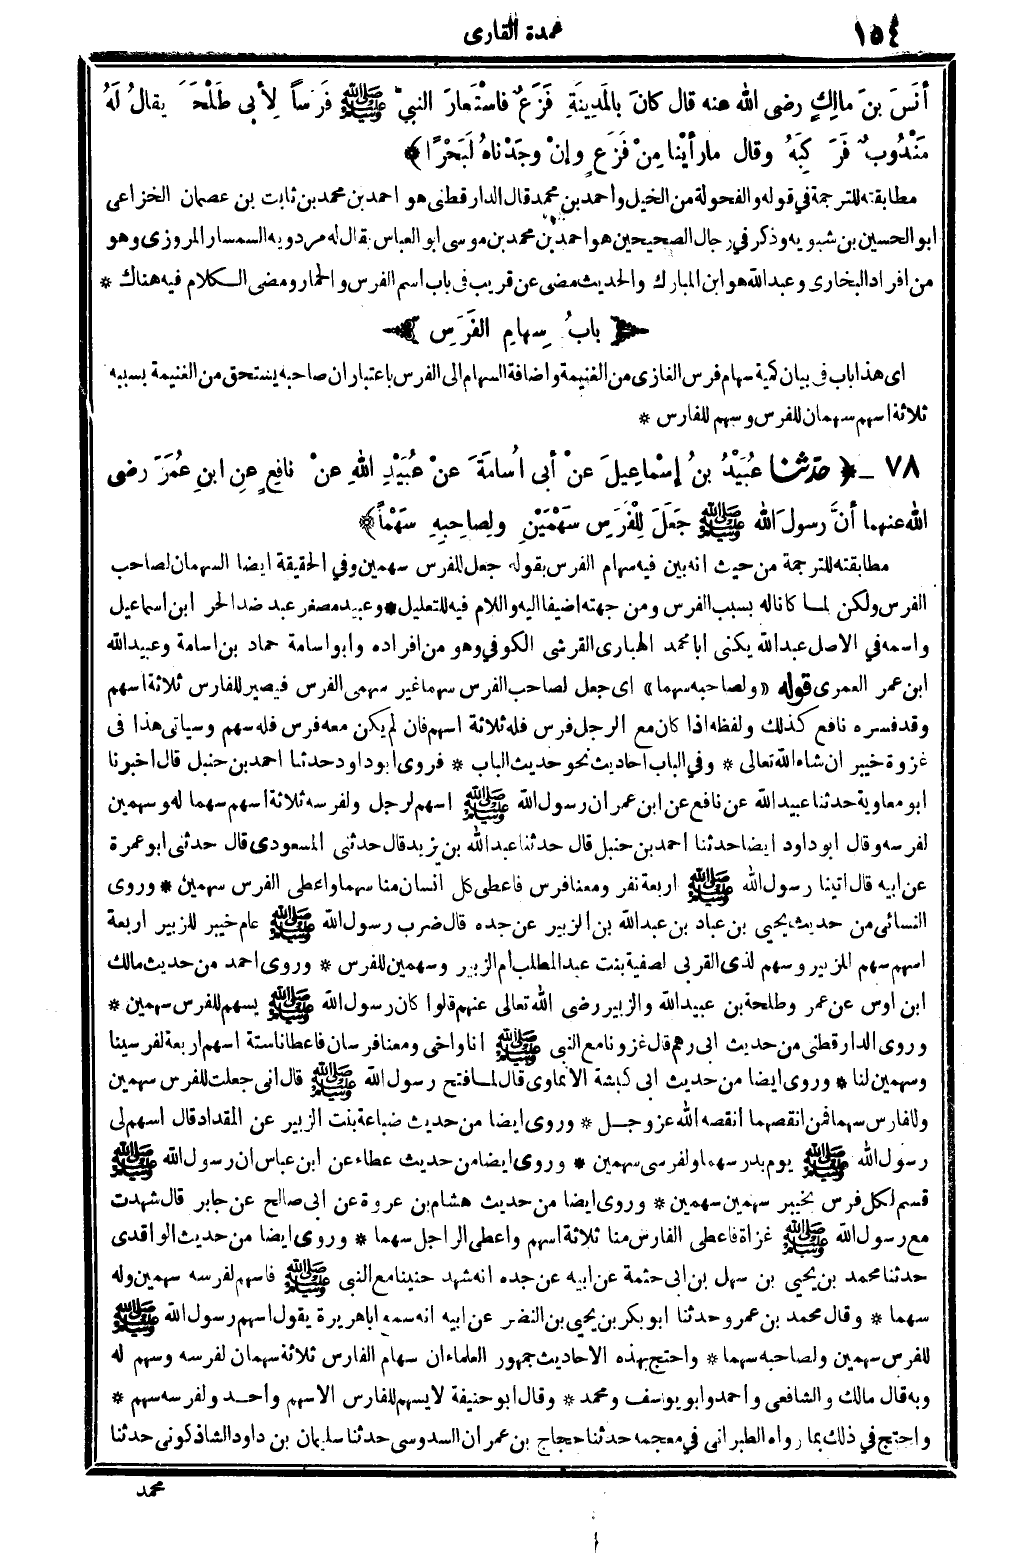 ١٥٤
عمدة القارى
أنَسَ بنَ مالِكٍ رضى الله عنه قال كانَ بالمَدِينَةِ فَزَعٌ فاسْتَعارَ النبيُّ ﷺ فَرَساً لِأبى طَلْحَةَ يقالُ لَهُ
مَنْدُوبٌ فَرَكِبَهُ وقال مارأيْنا مِنْ فَزَعٍ وإنْ وجَدْناهُ لَبَحْرًا ﴾
مطابقته للترجمة فى قوله والفحولة من الخيل وأحمد بن محمد قال الدارقطنى هو احمد بن محمد بن ثابت بن عصمان الخزاعى
ابو الحسين بن شبويه وذكر فى رجال الصحيحين هو احمد بن محمد بن موسى ابو العباس يقال له مردويه السمسار المروزى وهو
من افراد البخارى وعبد الله هو ابن المبارك والحديث مضى عن قريب فى باب اسم الفرس والحمار ومضى الكلام فيه هناك *
﴿ بابُ سِهامِ الفَرَسِ ﴾
اى هذا باب فى بيان كمية سهام فرس الغازى من الغنيمة واضافة السهام الى الفرس باعتبار ان صاحبه يستحق من الغنيمة بسببه
ثلاثة اسهم سهمان للفرس وسهم للفارس *
٧٨ ـ ﴿ حدّثنا عُبَيْدُ بنُ إسْماعِيلَ عنْ أبى أُسامَةَ عنْ عُبَيْدِ اللهِ عنْ نافِعٍ عنِ ابنِ عُمَرَ رضى
الله عنهما أنَّ رسولَ الله ﷺ جَعَلَ لِلْفَرَسِ سَهْمَيْنِ ولِصاحِبِهِ سَهْماً ﴾
مطابقته للترجمة من حيث انه بين فيه سهام الفرس بقوله جعل للفرس سهمين وفى الحقيقة ايضا السهمان لصاحب
الفرس ولكن لما كانا له بسبب الفرس ومن جهته اضيفا اليه واللام فيه للتعليل * وعبيد مصغر عبد ضد الحر ابن اسماعيل
واسمه فى الاصل عبد الله يكنى ابا محمد الهبارى القرشى الكوفى وهو من افراده وابو اسامة حماد بن اسامة وعبيد الله
ابن عمر العمرى قوله «ولصاحبه سهما» اى جعل لصاحب الفرس سهما غير سهمى الفرس فيصير للفارس ثلاثة اسهم
وقد فسره نافع كذلك ولفظه اذا كان مع الرجل فرس فله ثلاثة اسهم فان لم يكن معه فرس فله سهم وسيأتى هذا فى
غزوة خيبر ان شاء الله تعالى * وفى الباب احاديث نحو حديث الباب * فروى ابو داود حدثنا احمد بن حنبل قال اخبرنا
ابو معاوية حدثنا عبيد الله عن نافع عن ابن عمر ان رسول الله ﷺ اسهم لرجل ولفرسه ثلاثة اسهم سهما له وسهمين
لفرسه وقال ابو داود ايضا حدثنا احمد بن حنبل قال حدثنا عبد الله بن يزيد قال حدثنى المسعودى قال حدثنى ابو عمرة
عن ابيه قال اتينا رسول الله ﷺ اربعة نفر ومعنا فرس فاعطى كل انسان منا سهما واعطى الفرس سهمين * وروى
النسائى من حديث يحيى بن عباد بن عبد الله بن الزبير عن جده قال ضرب رسول الله ﷺ عام خيبر للزبير اربعة
اسهم سهم للزبير وسهم لذى القربى لصفية بنت عبد المطلب ام الزبير وسهمين للفرس * وروى احمد من حديث مالك
ابن اوس عن عمر وطلحة بن عبيد الله والزبير رضى الله تعالى عنهم قالوا كان رسول الله ﷺ يسهم للفرس سهمين *
وروى الدارقطنى من حديث ابى رهم قال غزونا مع النبى ﷺ انا واخى ومعنا فرسان فاعطانا ستة اسهم اربعة لفرسينا
وسهمين لنا * وروى ايضا من حديث ابى كبشة الانماوى قال لما فتح رسول الله ﷺ قال انى جعلت للفرس سهمين
وللفارس سهما فمن انقصهما انقصه الله عز وجل * وروى ايضا من حديث ضباعة بنت الزبير عن المقداد قال اسهم لى
رسول الله ﷺ يوم بدر سهما ولفرسى سهمين * وروى ايضا من حديث عطاء عن ابن عباس ان رسول الله ﷺ
قسم لكل فرس بخيبر سهمين سهمين * وروى ايضا من حديث هشام بن عروة عن ابى صالح عن جابر قال شهدت
مع رسول الله ﷺ غزاة فاعطى الفارس منا ثلاثة اسهم واعطى الراجل سهما * وروى ايضا من حديث الواقدى
حدثنا محمد بن يحيى بن سهل بن ابى حثمة عن ابيه عن جده انه شهد حنينا مع النبى ﷺ فاسهم لفرسه سهمين وله
سهما * وقال محمد بن عمرو حدثنا ابو بكر بن يحيى بن النضر عن ابيه انه سمع اباهريرة يقول اسهم رسول الله ﷺ
للفرس سهمين ولصاحبه سهما * واحتج بهذه الاحاديث جمهور العلماء ان سهام الفارس ثلاثة سهمان لفرسه وسهم له
وبه قال مالك والشافعى واحمد وابو يوسف ومحمد * وقال ابو حنيفة لا يسهم للفارس الا سهم واحد ولفرسه سهم *
واحتج فى ذلك بما رواه الطبرانى فى معجمه حدثنا حجاج بن عمران السدوسى حدثنا سليمان بن داود الشاذكونى حدثنا
محمد